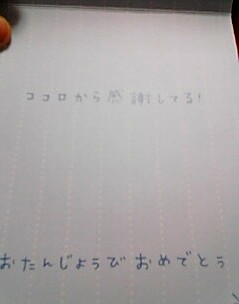 ココロから感謝してる!
おたんじょうび おめでとう